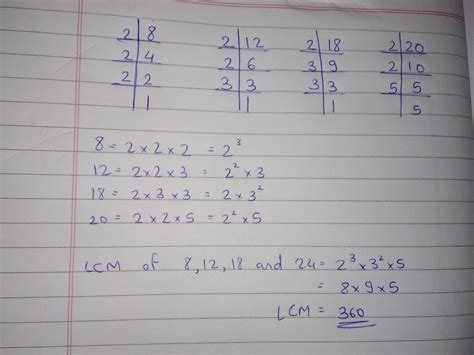 2 | 8   2 | 12   2 | 18   2 | 20
2 | 4   2 | 6   3 | 9   2 | 10
2 | 2   3 | 3   3 | 3   5 | 5
1   1   1   5
8 = 2 × 2 × 2 = 2³
12 = 2 × 2 × 3 = 2² × 3
18 = 2 × 3 × 3 = 2 × 3²
20 = 2 × 2 × 5 = 2² × 5
LCM of 8, 12, 18 and 24 = 2³ × 3² × 5
= 8 × 9 × 5
LCM = 360